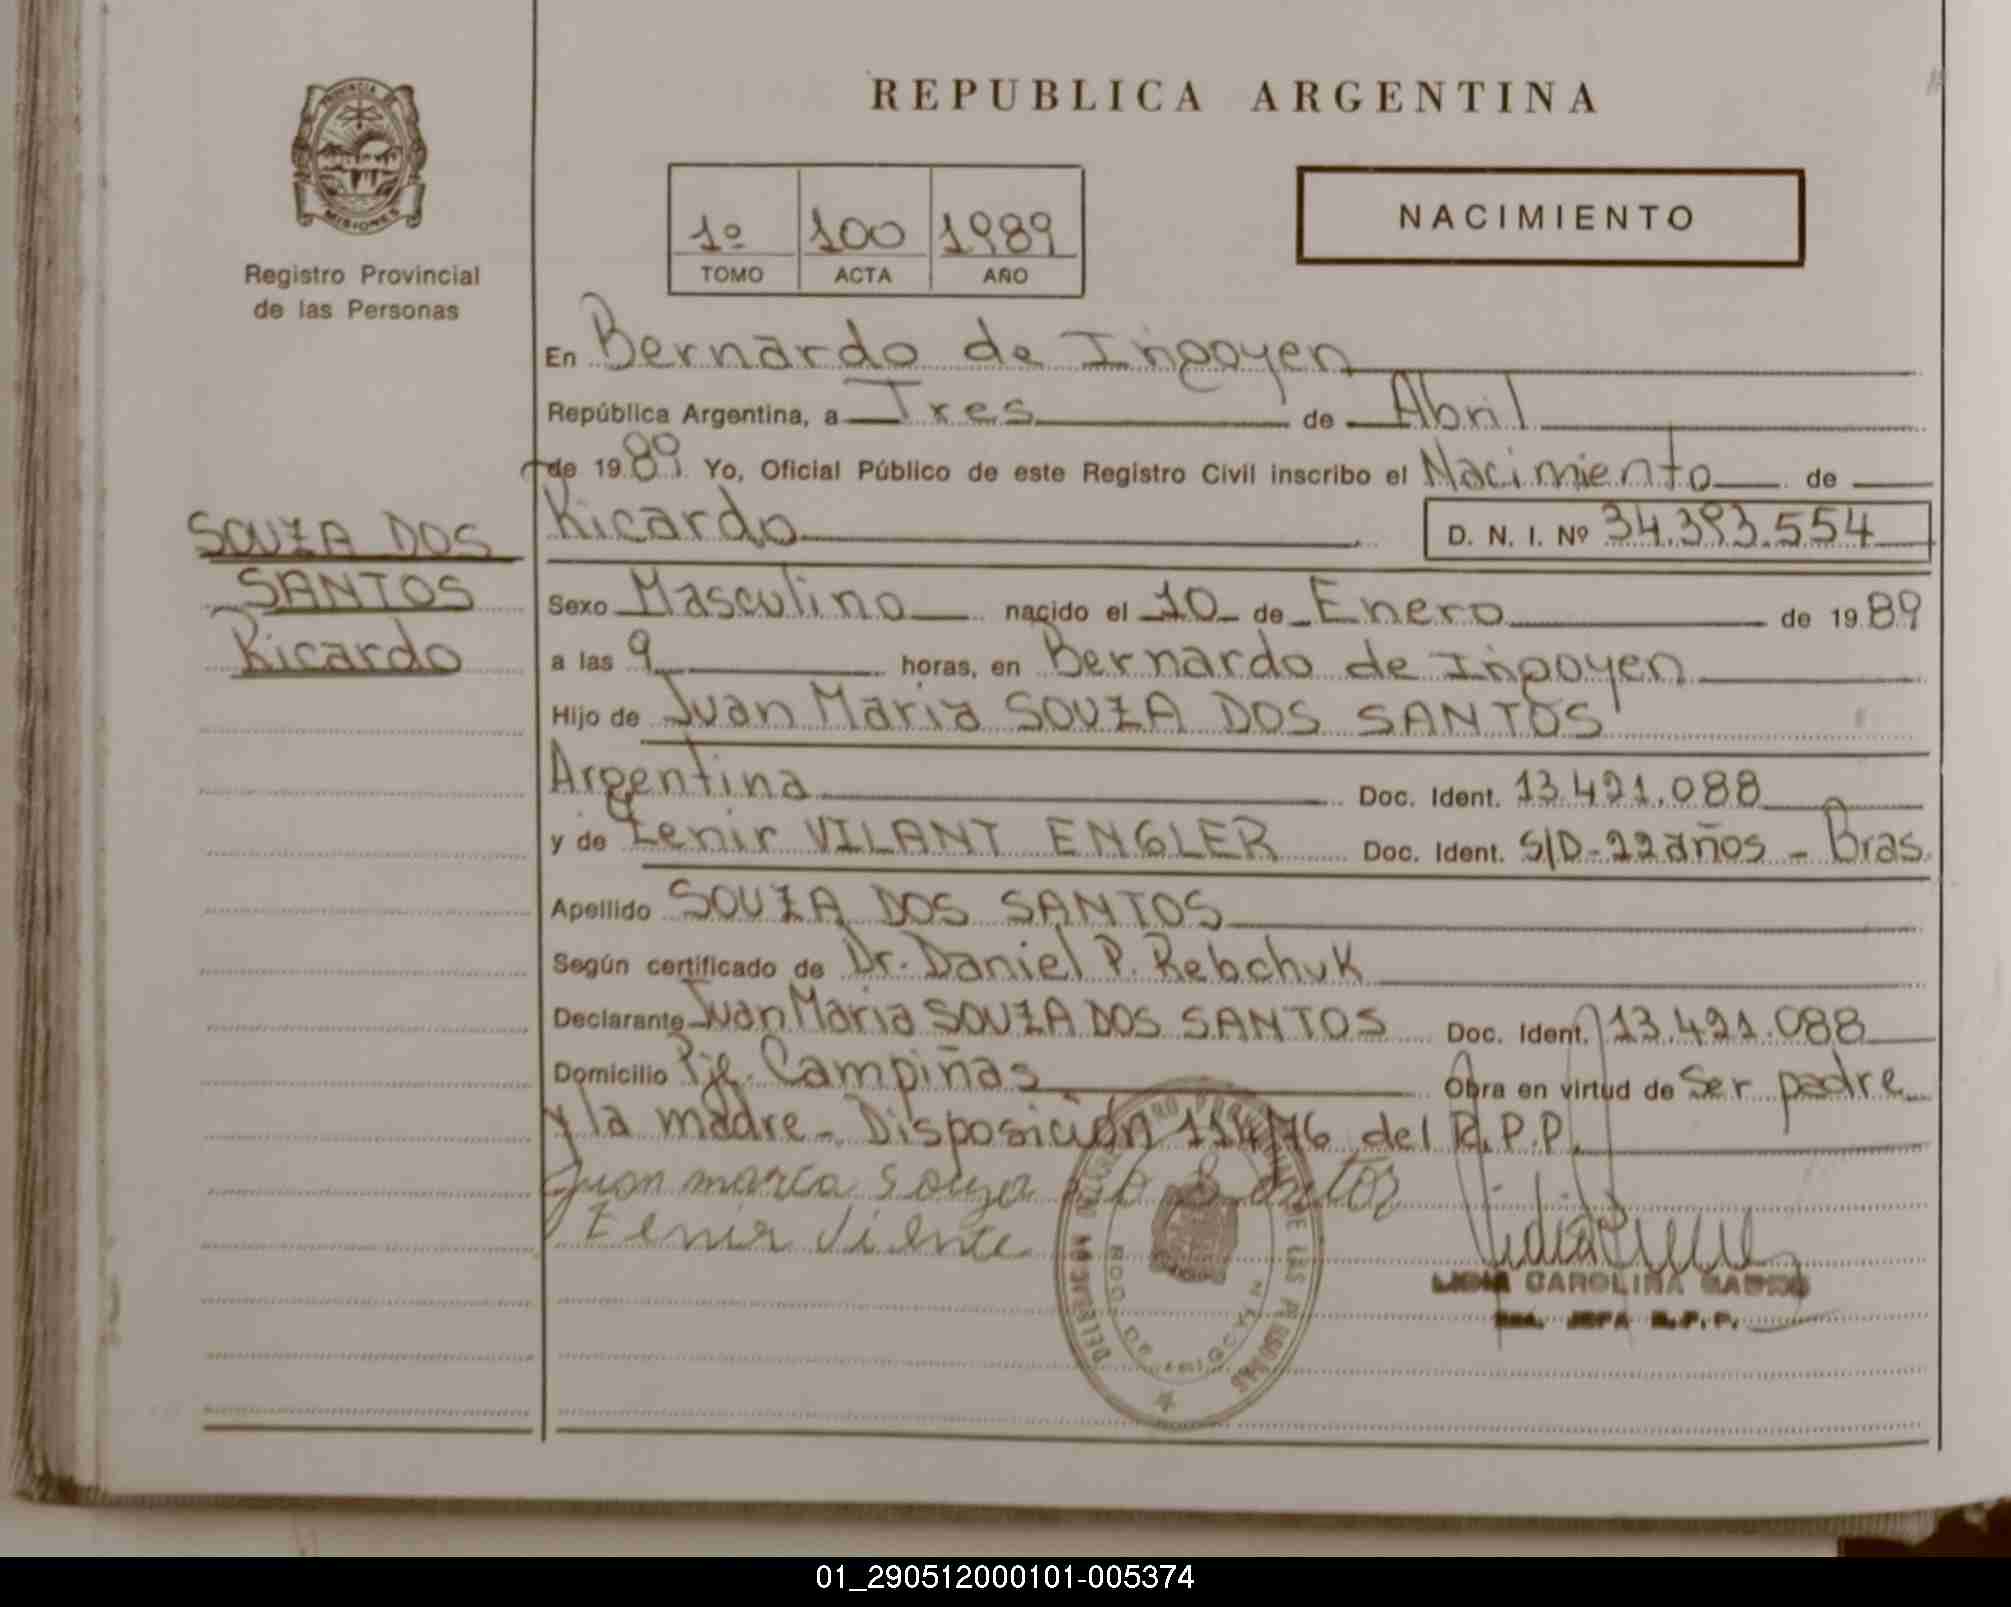 PROVINCIA DE
MISIONES
Registro Provincial
de las Personas
SOUZA DOS
SANTOS
Ricardo
REPUBLICA ARGENTINA
1º 100 1989
TOMO ACTA AÑO
NACIMIENTO
En Bernardo de Irigoyen
República Argentina, a Tres de Abril
de 1989. Yo, Oficial Público de este Registro Civil inscribo el Nacimiento de
Ricardo D. N. I. Nº 34.393.554
Sexo Masculino nacido el 10 de Enero de 1989
a las 9 horas, en Bernardo de Irigoyen
Hijo de Juan Maria SOUZA DOS SANTOS
Argentina Doc. Ident. 13.421.088
y de Zenir VILANT ENGLER Doc. Ident. S/D-22 años - Bras.
Apellido SOUZA DOS SANTOS
Según certificado de Dr. Daniel P. Rebchuk
Declarante Juan Maria SOUZA DOS SANTOS Doc. Ident. 13.421.088
Domicilio Pje. Campiñas Obra en virtud de Ser padre
y la madre - Disposición 114/76 del R.P.P.
Juan marca Souza Santos
Zenir
LIDIA CAROLINA
JEFA R.P.P.
01_290512000101-005374